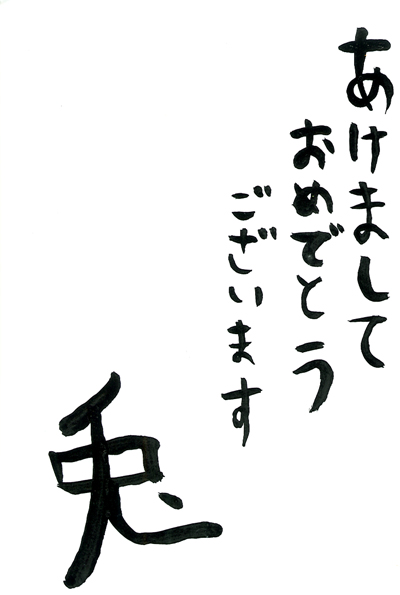 あけまして
おめでとう
ございます
兎